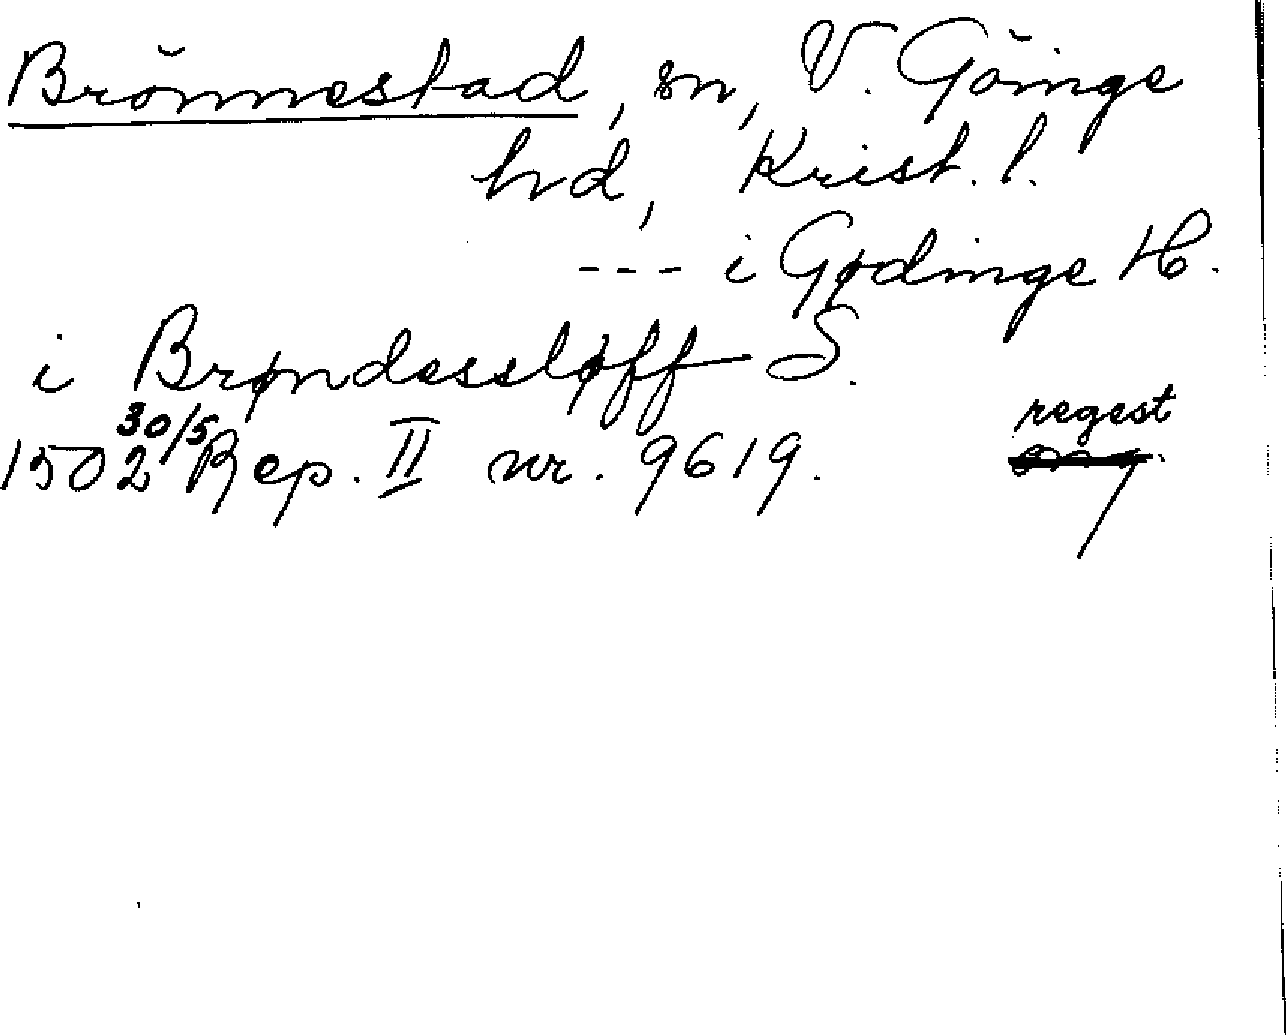 Brönnestad, sn, V. Göinge
hd, Krist. l.
--- i Gødinge H.
i Brøndessløff S.
30/5 regest
1502 Rep. II nr. 9619.